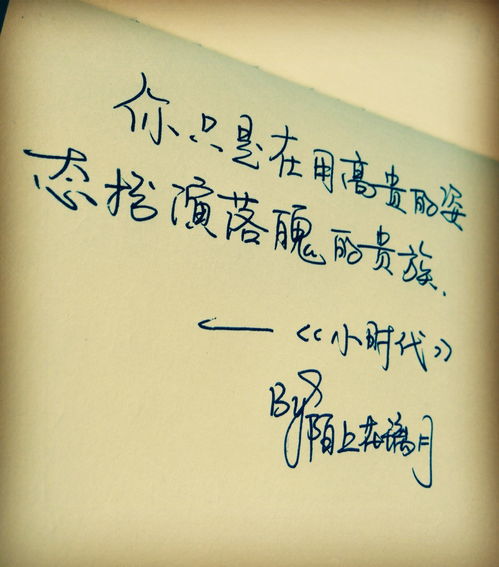 你只是在用高贵的姿
态扮演落魄的贵族.
—《小时代》
By 陌上月